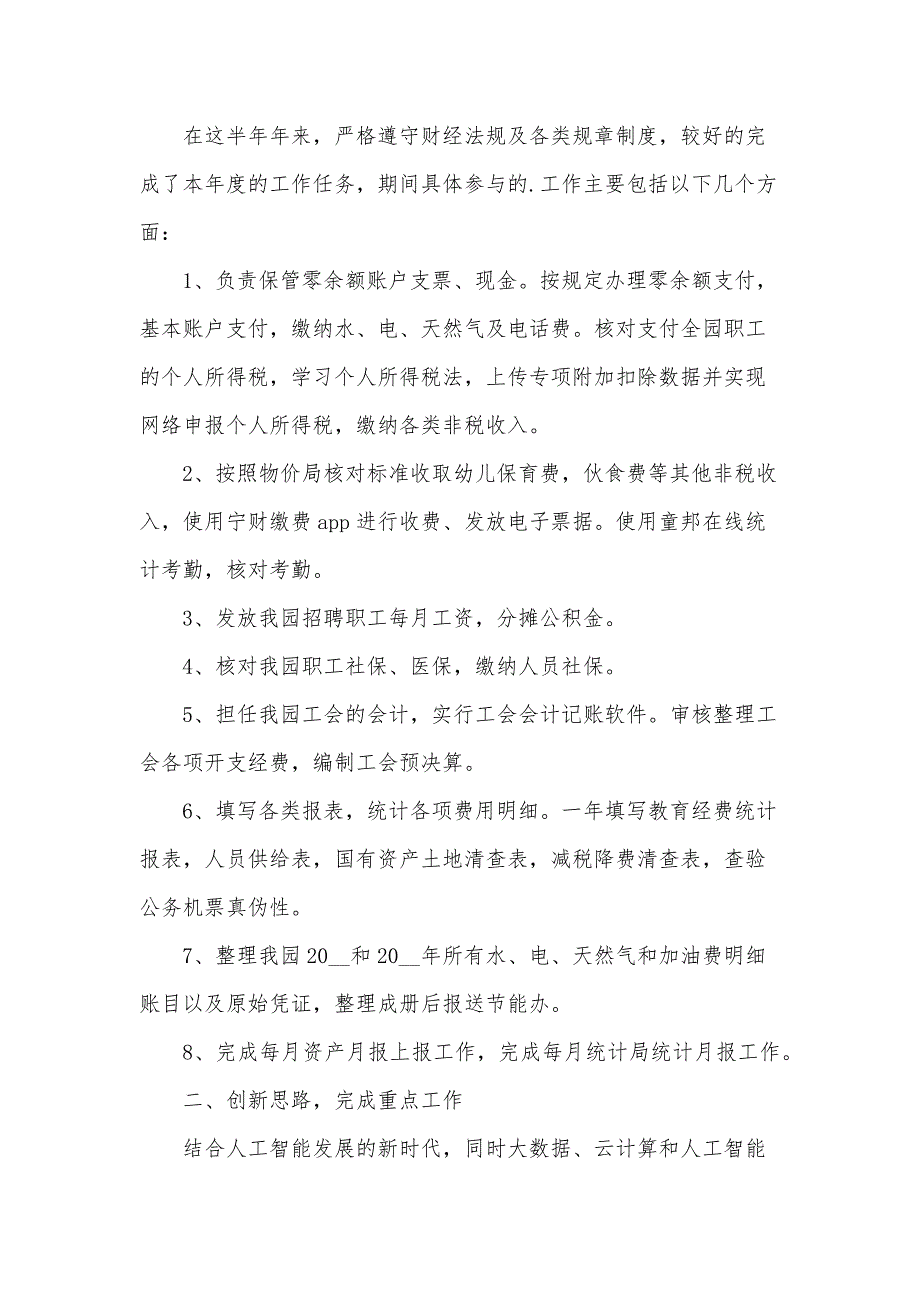 在这半年年来，严格遵守财经法规及各类规章制度，较好的完
成了本年度的工作任务，期间具体参与的.工作主要包括以下几个方
面：
1、负责保管零余额账户支票、现金。按规定办理零余额支付，
基本账户支付，缴纳水、电、天然气及电话费。核对支付全园职工
的个人所得税，学习个人所得税法，上传专项附加扣除数据并实现
网络申报个人所得税，缴纳各类非税收入。
2、按照物价局核对标准收取幼儿保育费，伙食费等其他非税收
入，使用宁财缴费 app 进行收费、发放电子票据。使用童邦在线统
计考勤，核对考勤。
3、发放我园招聘职工每月工资，分摊公积金。
4、核对我园职工社保、医保，缴纳人员社保。
5、担任我园工会的会计，实行工会会计记账软件。审核整理工
会各项开支经费，编制工会预决算。
6、填写各类报表，统计各项费用明细。一年填写教育经费统计
报表，人员供给表，国有资产土地清查表，减税降费清查表，查验
公务机票真伪性。
7、整理我园 20__和 20__年所有水、电、天然气和加油费明细
账目以及原始凭证，整理成册后报送节能办。
8、完成每月资产月报上报工作，完成每月统计局统计月报工作。
二、创新思路，完成重点工作
结合人工智能发展的新时代，同时大数据、云计算和人工智能